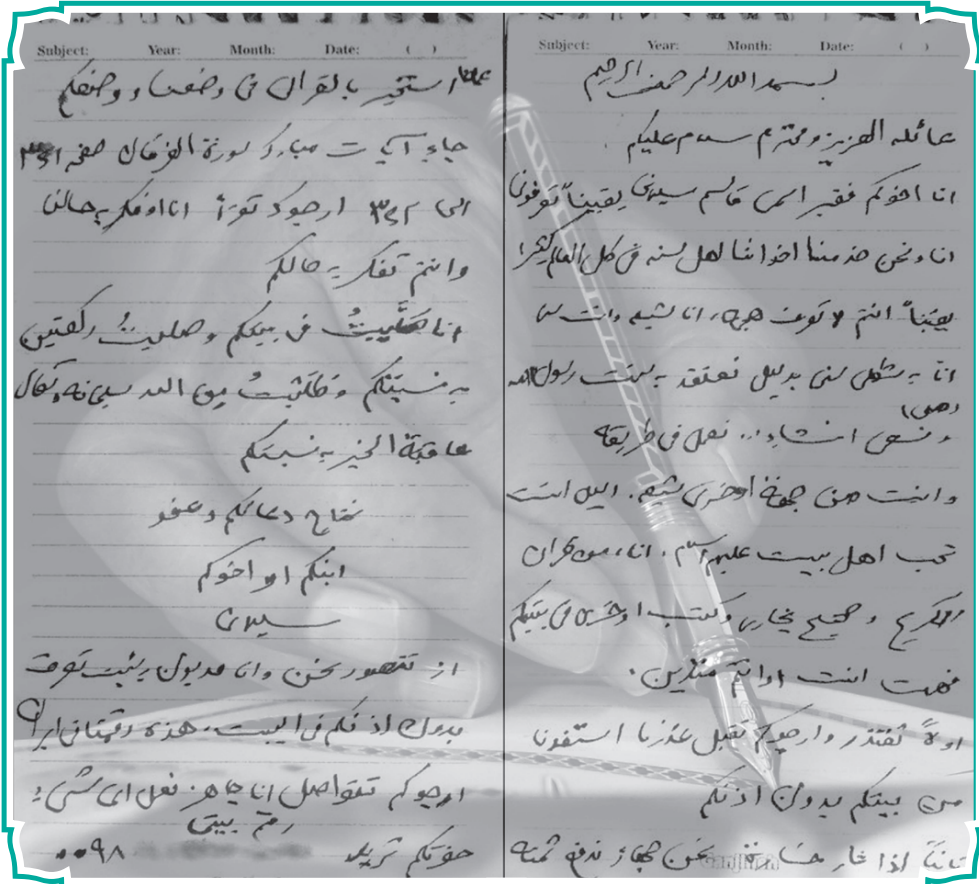 Subject: Year: Month: Date: ( )
بسم الله الرحمن الرحیم
عائله العزیز و محترم سلام علیکم
انا اخوکم فقیر اسمی قاسم سلیمانی یقیناً تعرفونی
انا و نحن خدمنا اخواننا لهل سنه فی کل العالم کثیرا
یقیناً انتم لا تعرف هیچی، انا شیعه و انت سنی
انا به شکل سنی بدلیل نعتقد به سنت رسول الله
(ص)
و نسعی انشاء... نعمل فی طریقه
و انت من جهة اخری شیعه. الیل انت
تحب اهل بیت علیهم السلام. انا، من قران
الکریم و صحیح بخاری و کتب اخری فی بیتکم
فهمت انت او انتم متدین.
اولاً نعتذر و ارجوکم تقبل عذرنا استفدنا
من بیتکم بدون اذنکم
ثانیاً اذا صار خساره نحن جهاز ندفع ثمنه
Ganjin
Subject: Year: Month: Date: ( )
استخیر بالقران فی وضعنا و وضعکم
جاء آیات مبارکه سورة الفرقان صفحه ٣٦١
الی ٣٦٢ ارجوک تقرأ انا افکر به حالنا
و انتم تفکر به حالکم
انا صَلَّیتُ فی بیتکم و صلیتُ رکعتین
به نسبتکم و طَلَبتُ من الله سبحانه و تعالی
عاقبة الخیر به نسبتکم
نحتاج دعائکم و عفو
ابنکم او اخوکم
سلیمانی
از تتصور نحن و انا مدیون به بیت توقف
بدون اذنکم فی البیت، هذه رقمنا فی ایران
ارجوکم تتواصل انا جاهز نعمل ای شیء
رقم بیتی
حضرتکم ترید
٠٠٩٨